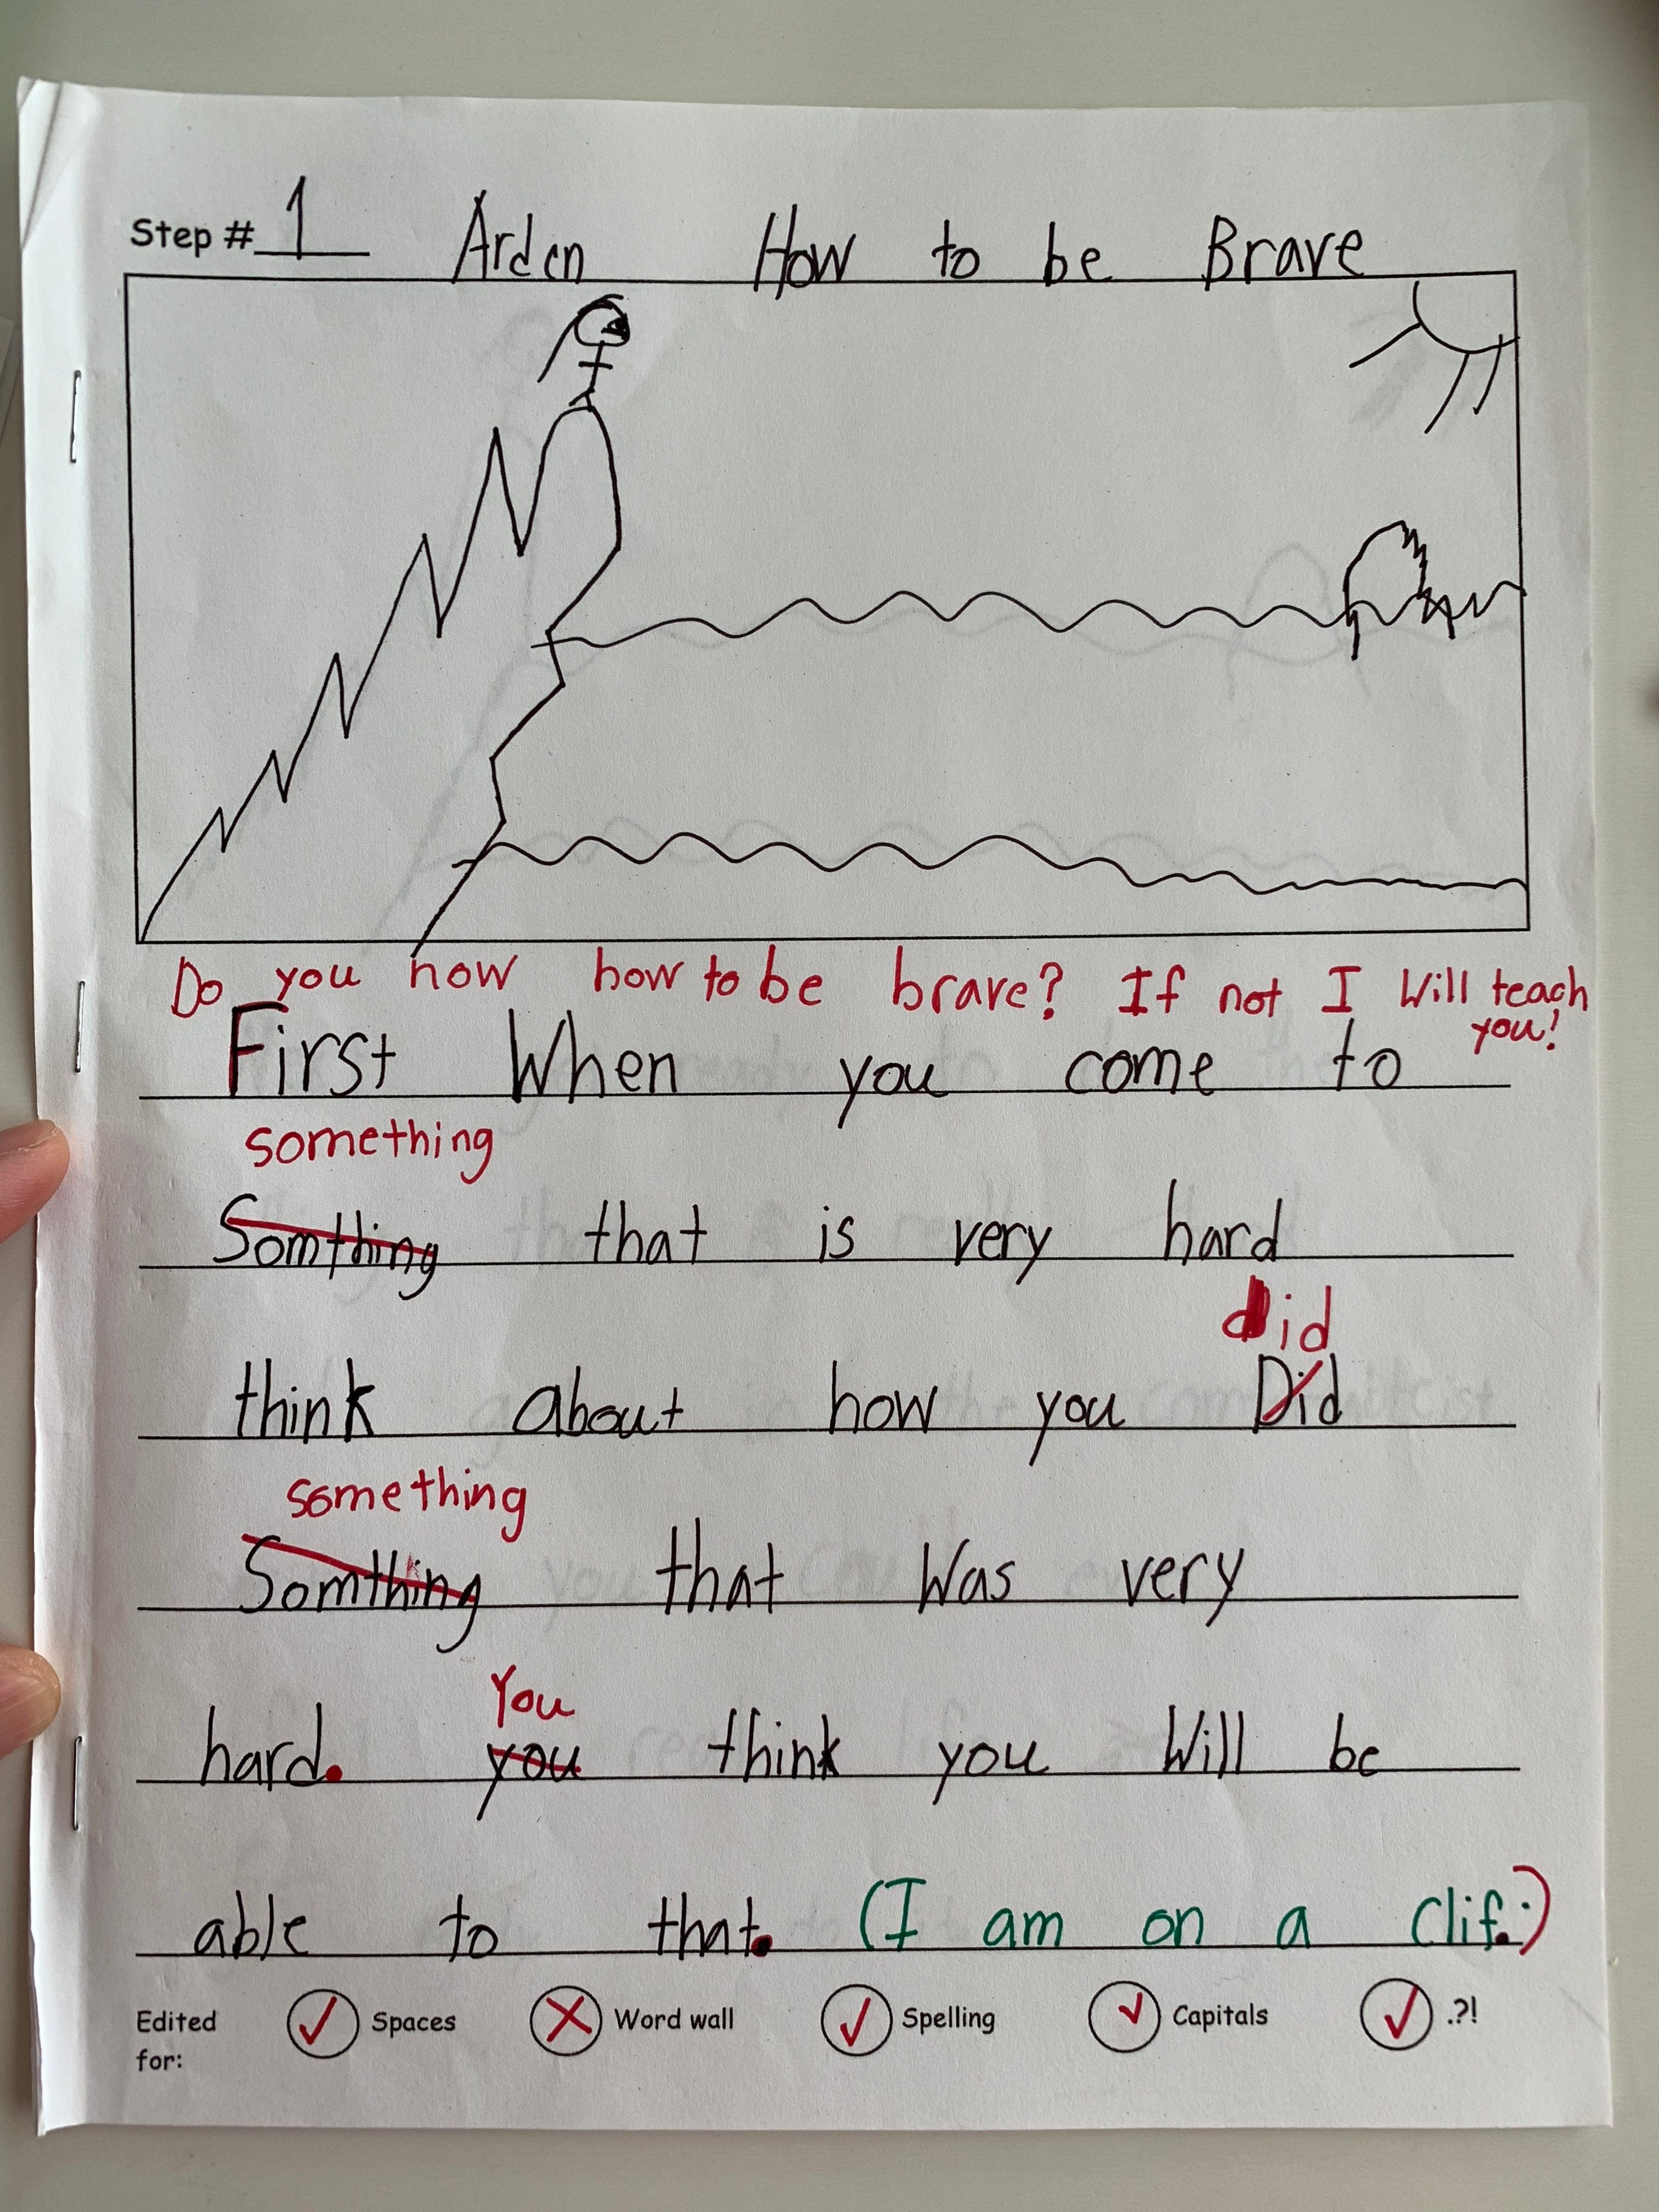 Step # 1 Arden How to be Brave
Do you now how to be brave? If not I Will teach
you!
First When you come to
something
Somthing that is very hard
did
think about how you Did
something
Somthing that Was very
You
hard. you think you Will be
able to that. (I am on a Clif.)
Edited for: Spaces Word wall Spelling Capitals .?!